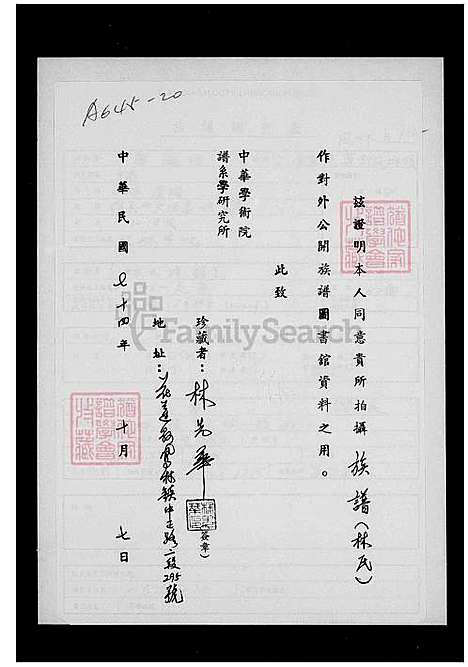 A645-20
茲證明本人同意貴所拍攝族譜(林氏)
作對外公開族譜圖書館資料之用。
此致
中華學術院
譜系學研究所
珍藏者：林光華(簽章)
地址：花蓮縣鳳林鎮中正路二段295號
中華民國七十四年十月七日
FamilySearch